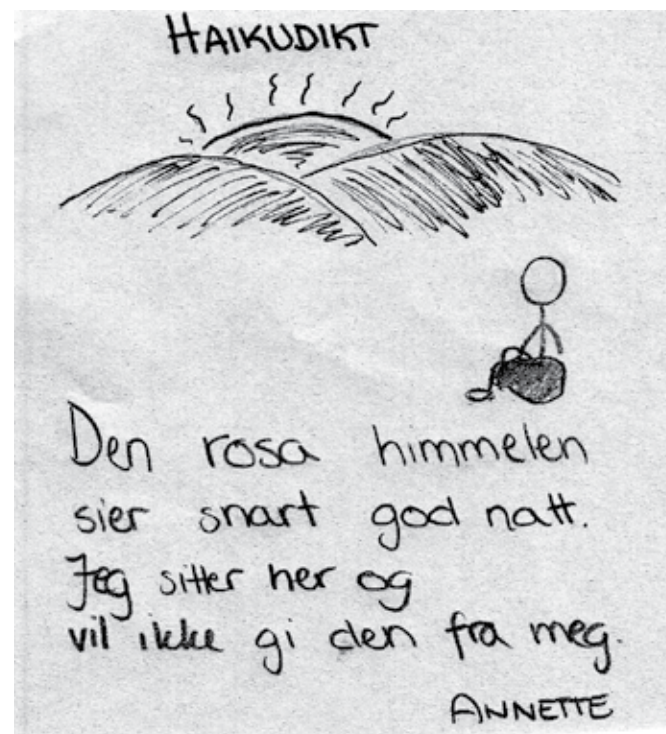 HAIKUDIKT
Den rosa himmelen
sier snart god natt.
Jeg sitter her og
vil ikke gi den fra meg.
ANNETTE